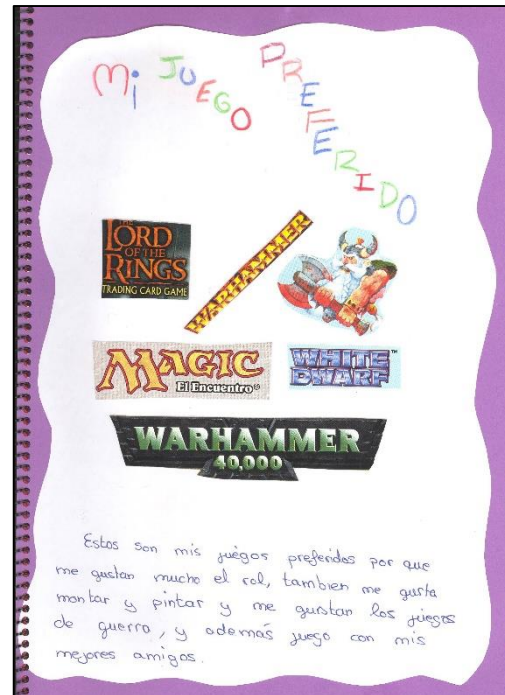 Mi JUEGO PREFERIDO
THE
LORD
OF THE
RINGS
TRADING CARD GAME
WARHAMMER
MAGIC
El Encuentro®
WHITE
DWARF™
WARHAMMER
40,000
Estos son mis juegos preferidos por que
me gustan mucho el rol, tambien me gusta
montar y pintar y me gustan los juegos
de guerra, y además juego con mis
mejores amigos.